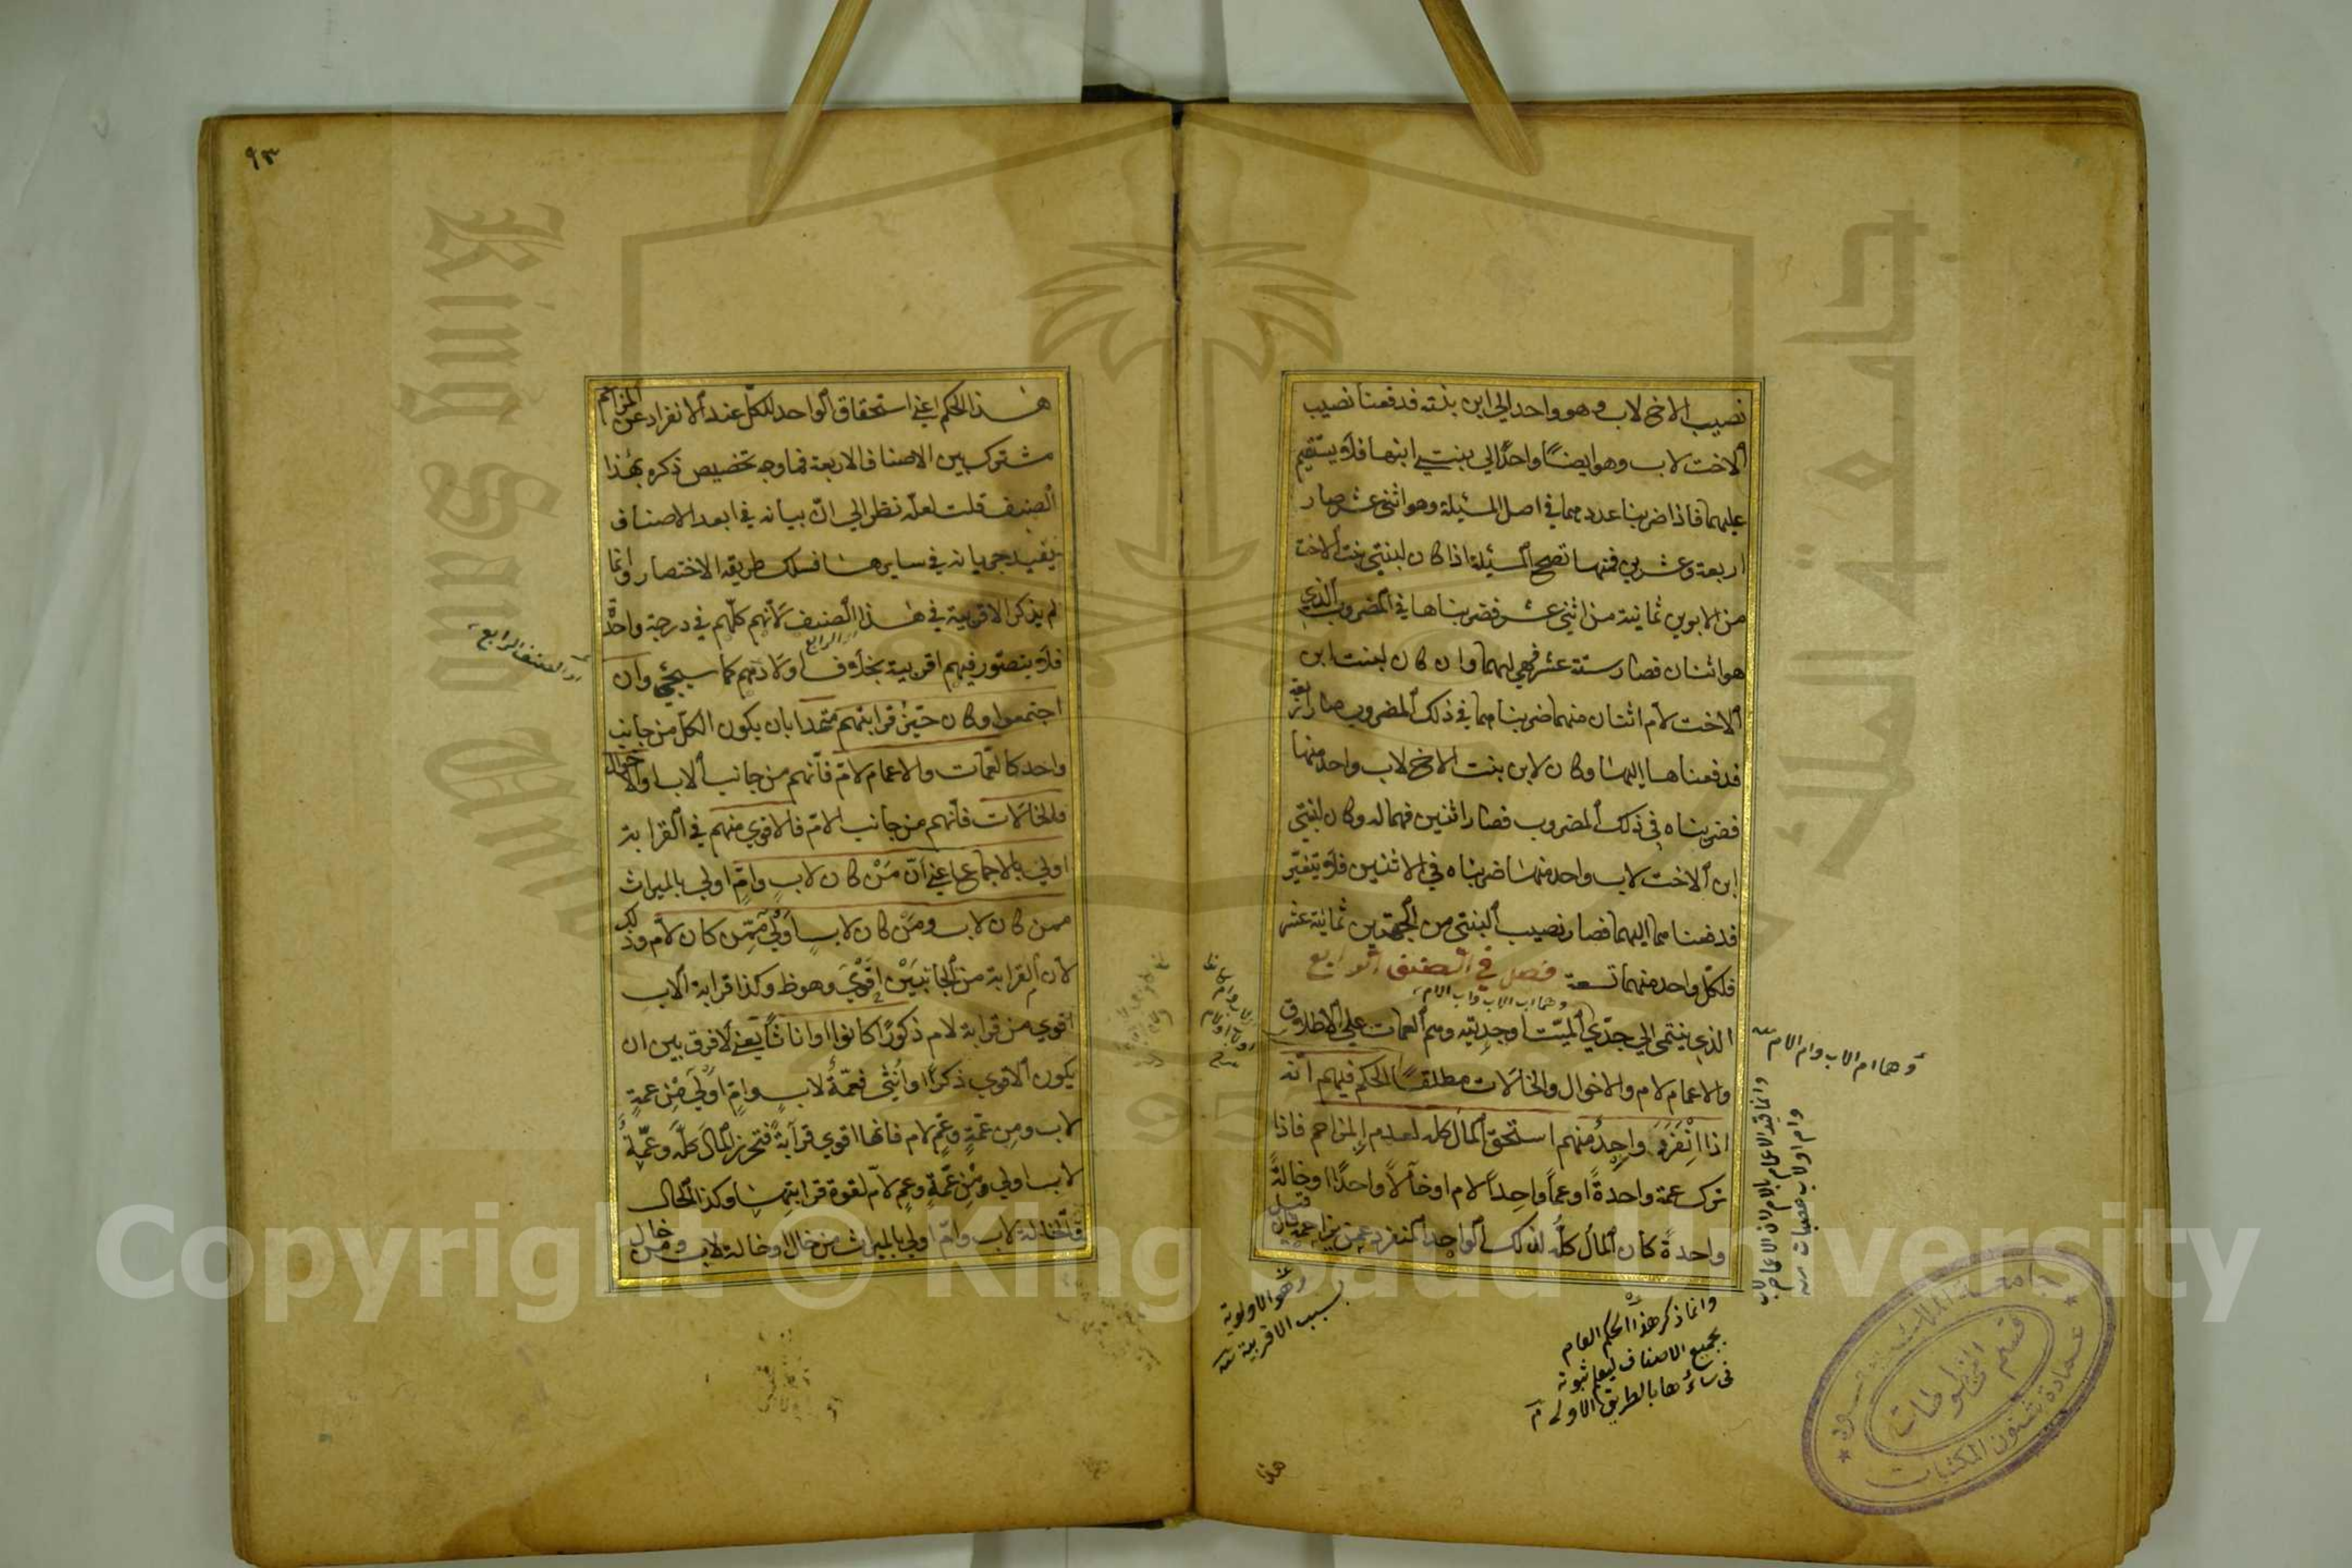 نصيب الاخ لاب وهو واحد الي ابن بنته فدفعنا نصيب
الاخت لاب وهو ايضًا واحدًا الي بنتي ابنها فلا يستقيم
عليهما فاذا ضربنا عددهما في اصل المسئلة وهو اثنى عشر صار
اربعة وعشرين فمنها تصح المسئلة اذا كان لبنتي بنت الاخت
من الابوين ثمانية من اثنى عشر فضربناها في المضروب الذي
هو اثنان فصار ستة عشر فهي لهما وان كان لبنت ابن
الاخت لام اثنتان منهما ضربناهما في ذلك المضروب صار اربعة
فدفعناها اليها وكان لابن بنت الاخ لاب واحد منها
فضربناه في ذلك المضروب فصار اثنين فهما له وكان لبنتي
ابن الاخت لاب واحد منها ضربناه في الاثنين فلا يتغير
فدفعناهما اليهما فصار نصيب البنتي من الجهتين ثمانية عشر
فلكل واحد منهما تسعة فصل في الصنف الرابع
وهما اب الاب واب الام
الذي ينتمى الي جدّي الميّت او جدتيه وهم العمات علي الاطلاق
والاعمام لام والاخوال والخالات مطلقًا الحكم فيهم انه
اذا انْفَرَدَ واحِدٌ منهم استحق المال كله لعدم المزاحم فاذا
ترك عمة واحدةً او عماً واحِداً لام او خالًا واحدًا او خالةً
واحدةً كان المال كلُّه لذلك الواحد المنفرد عمن يزاحمه فان قيل
وهما ام الاب وام الام
وانما ذكر هذا الحكم العام
بجميع الاصناف ليعلم ثبوته
فى سائرها بالطريق الاولى
وهو الاولوية
بسبب الاقربية
هذا
٩٣
هذا الحكم اعني استحقاق الواحد للكل عند الانفراد عن المزاحم
مشترك بين الاصناف الاربعة فما وجه تخصيص ذكره بهذا
الصنف قلت لعله نظر الي انّ بيانه في ابعد الاصناف
يفيد جريانه في سايرها فسلك طريقة الاختصار وانما
لم يذكر الاقربية في هذا الصنف لانهم كلّهم في درجة واحدة
فلا يتصور فيهم اقربية بخلاف اولادهم كما سيجئ وان
اي الصنف الرابع
اجتمعوا وكان حيّز قرابتهم متحدا بان يكون الكل من جانب
واحد كالعمّات والاعمام لامّ فانهم من جانب الاب والاخوال
والخالات فانهم من جانب الامّ فالاقوي منهم في القرابة
اولي بالاجماع اعني انّ مَنْ كان لابٍ وامٍّ اولي بالميراث
ممن كان لاب ومَن كان لابٍ اَوْلَي مِمَّن كان لام وذلك
لان القرابة من الجانبَيْن اقْوَيَ وهو ظ وكذا قرابة الاب
اقوي من قرابة لام ذكورًا كانوا او اناثًا يعني لا فرق بين ان
يكون الاقوي ذكرًا او اُنثى فعمّةٌ لابٍ وامٍّ اَوْلَيَ مِنْ عمةٍ
لاب ومِن عمّةٍ وعمٍ لام فانها اقوي قرابةً فتحرز المال كلَّه وعمّةٌ
لاب اولي ومِنْ عمّةٍ وعمٍ لام لقوة قرابتها وكذا الحال
فالخالة لاب وامّ اولي بالميراث من خال او خالة لاب ومن خال
جامعة الملك سعود
قسم المخطوطات
عمادة شئون المكتبات
King Saud University
جامعة الملك سعود
1957
Copyright © King Saud University